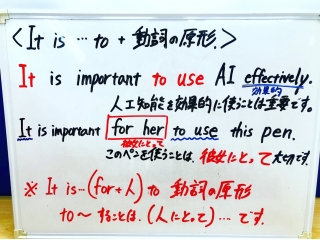 < It is … to + 動詞の原形. >
It is important to use AI effectively.
効果的
人工知能を効果的に使うことは重要です。
It is important for her to use this pen.
彼女にとって
このペンを使うことは、彼女にとって大切です。
※ It is…(for+人) to 動詞の原形
to〜することは、(人にとって)…です。